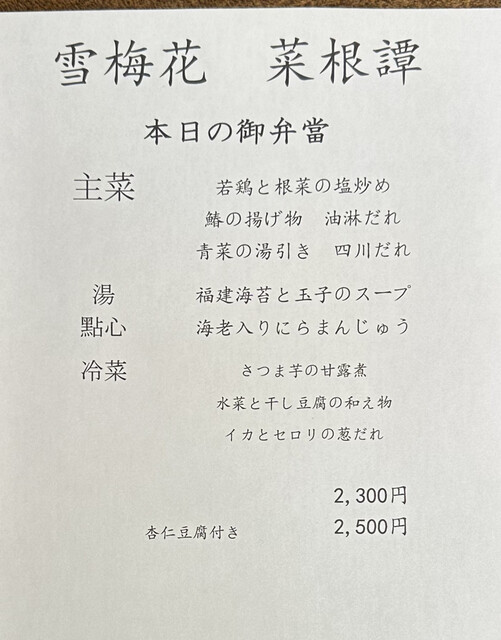 雪梅花 菜根譚
本日の御弁當
主菜 若鶏と根菜の塩炒め
鰆の揚げ物 油淋だれ
青菜の湯引き 四川だれ
湯 福建海苔と玉子のスープ
點心 海老入りにらまんじゅう
冷菜 さつま芋の甘露煮
水菜と干し豆腐の和え物
イカとセロリの葱だれ
2,300円
杏仁豆腐付き 2,500円